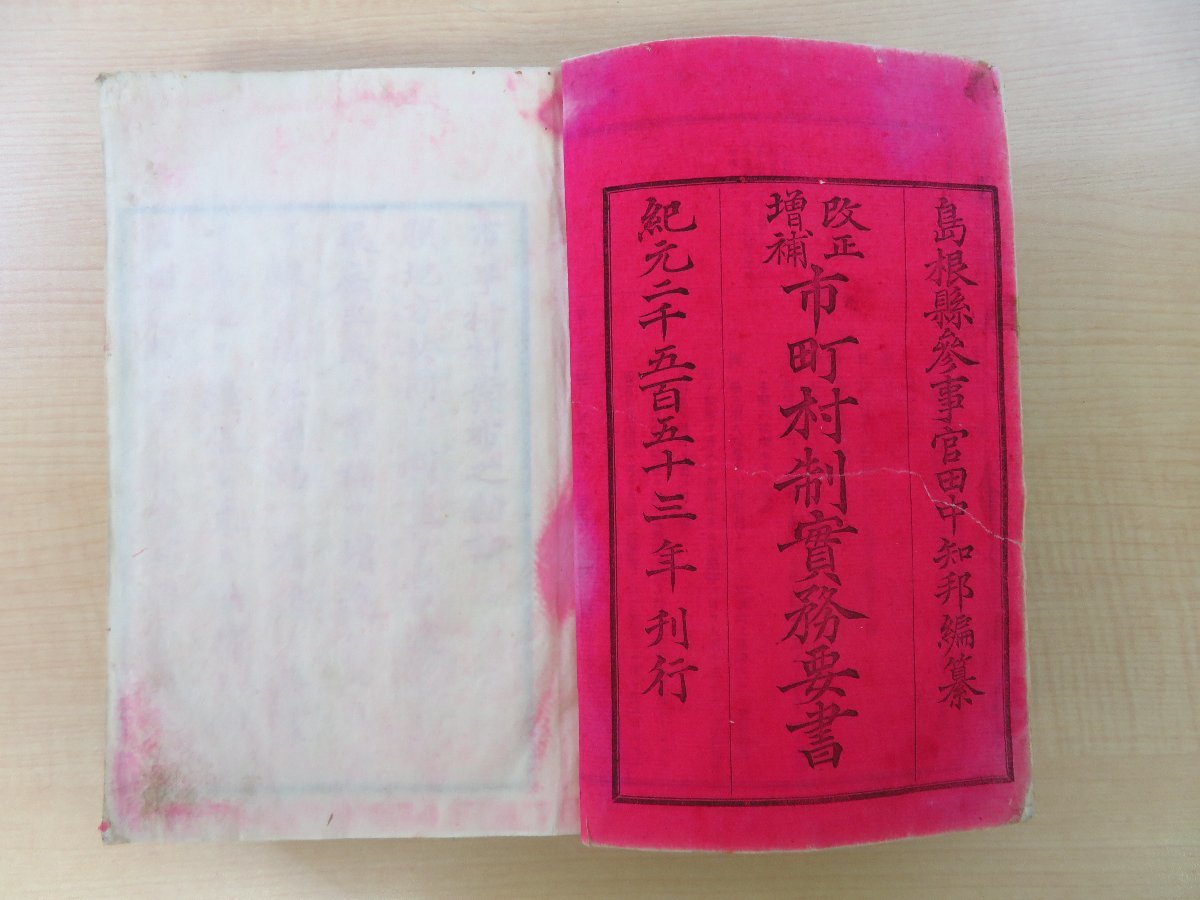 島根縣參事官田中知邦編纂
改正
增補
市町村制實務要書
紀元二千五百五十三年刊行